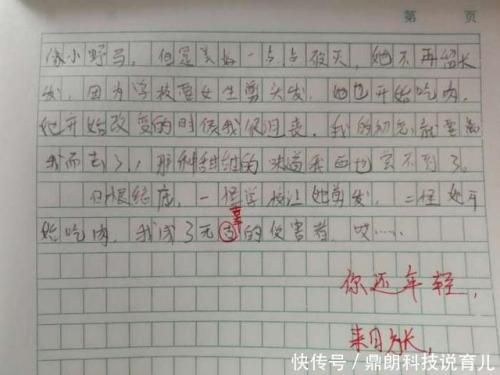 第 页
像小野马，但是美好一点点破灭，她不再留长
发，因为学校要女生剪头发，她也开始吃肉。
她开始改变的时候我很沮丧，我的初恋就要离
我而去了，那种甜甜的味道我再也尝不到了。
归根结底，一怪学校让她剪发，二怪她开
始吃肉，我成了无辜的伤害者，哎……
你还年轻，
来日方长，
快传号/鼎朗科技说育儿